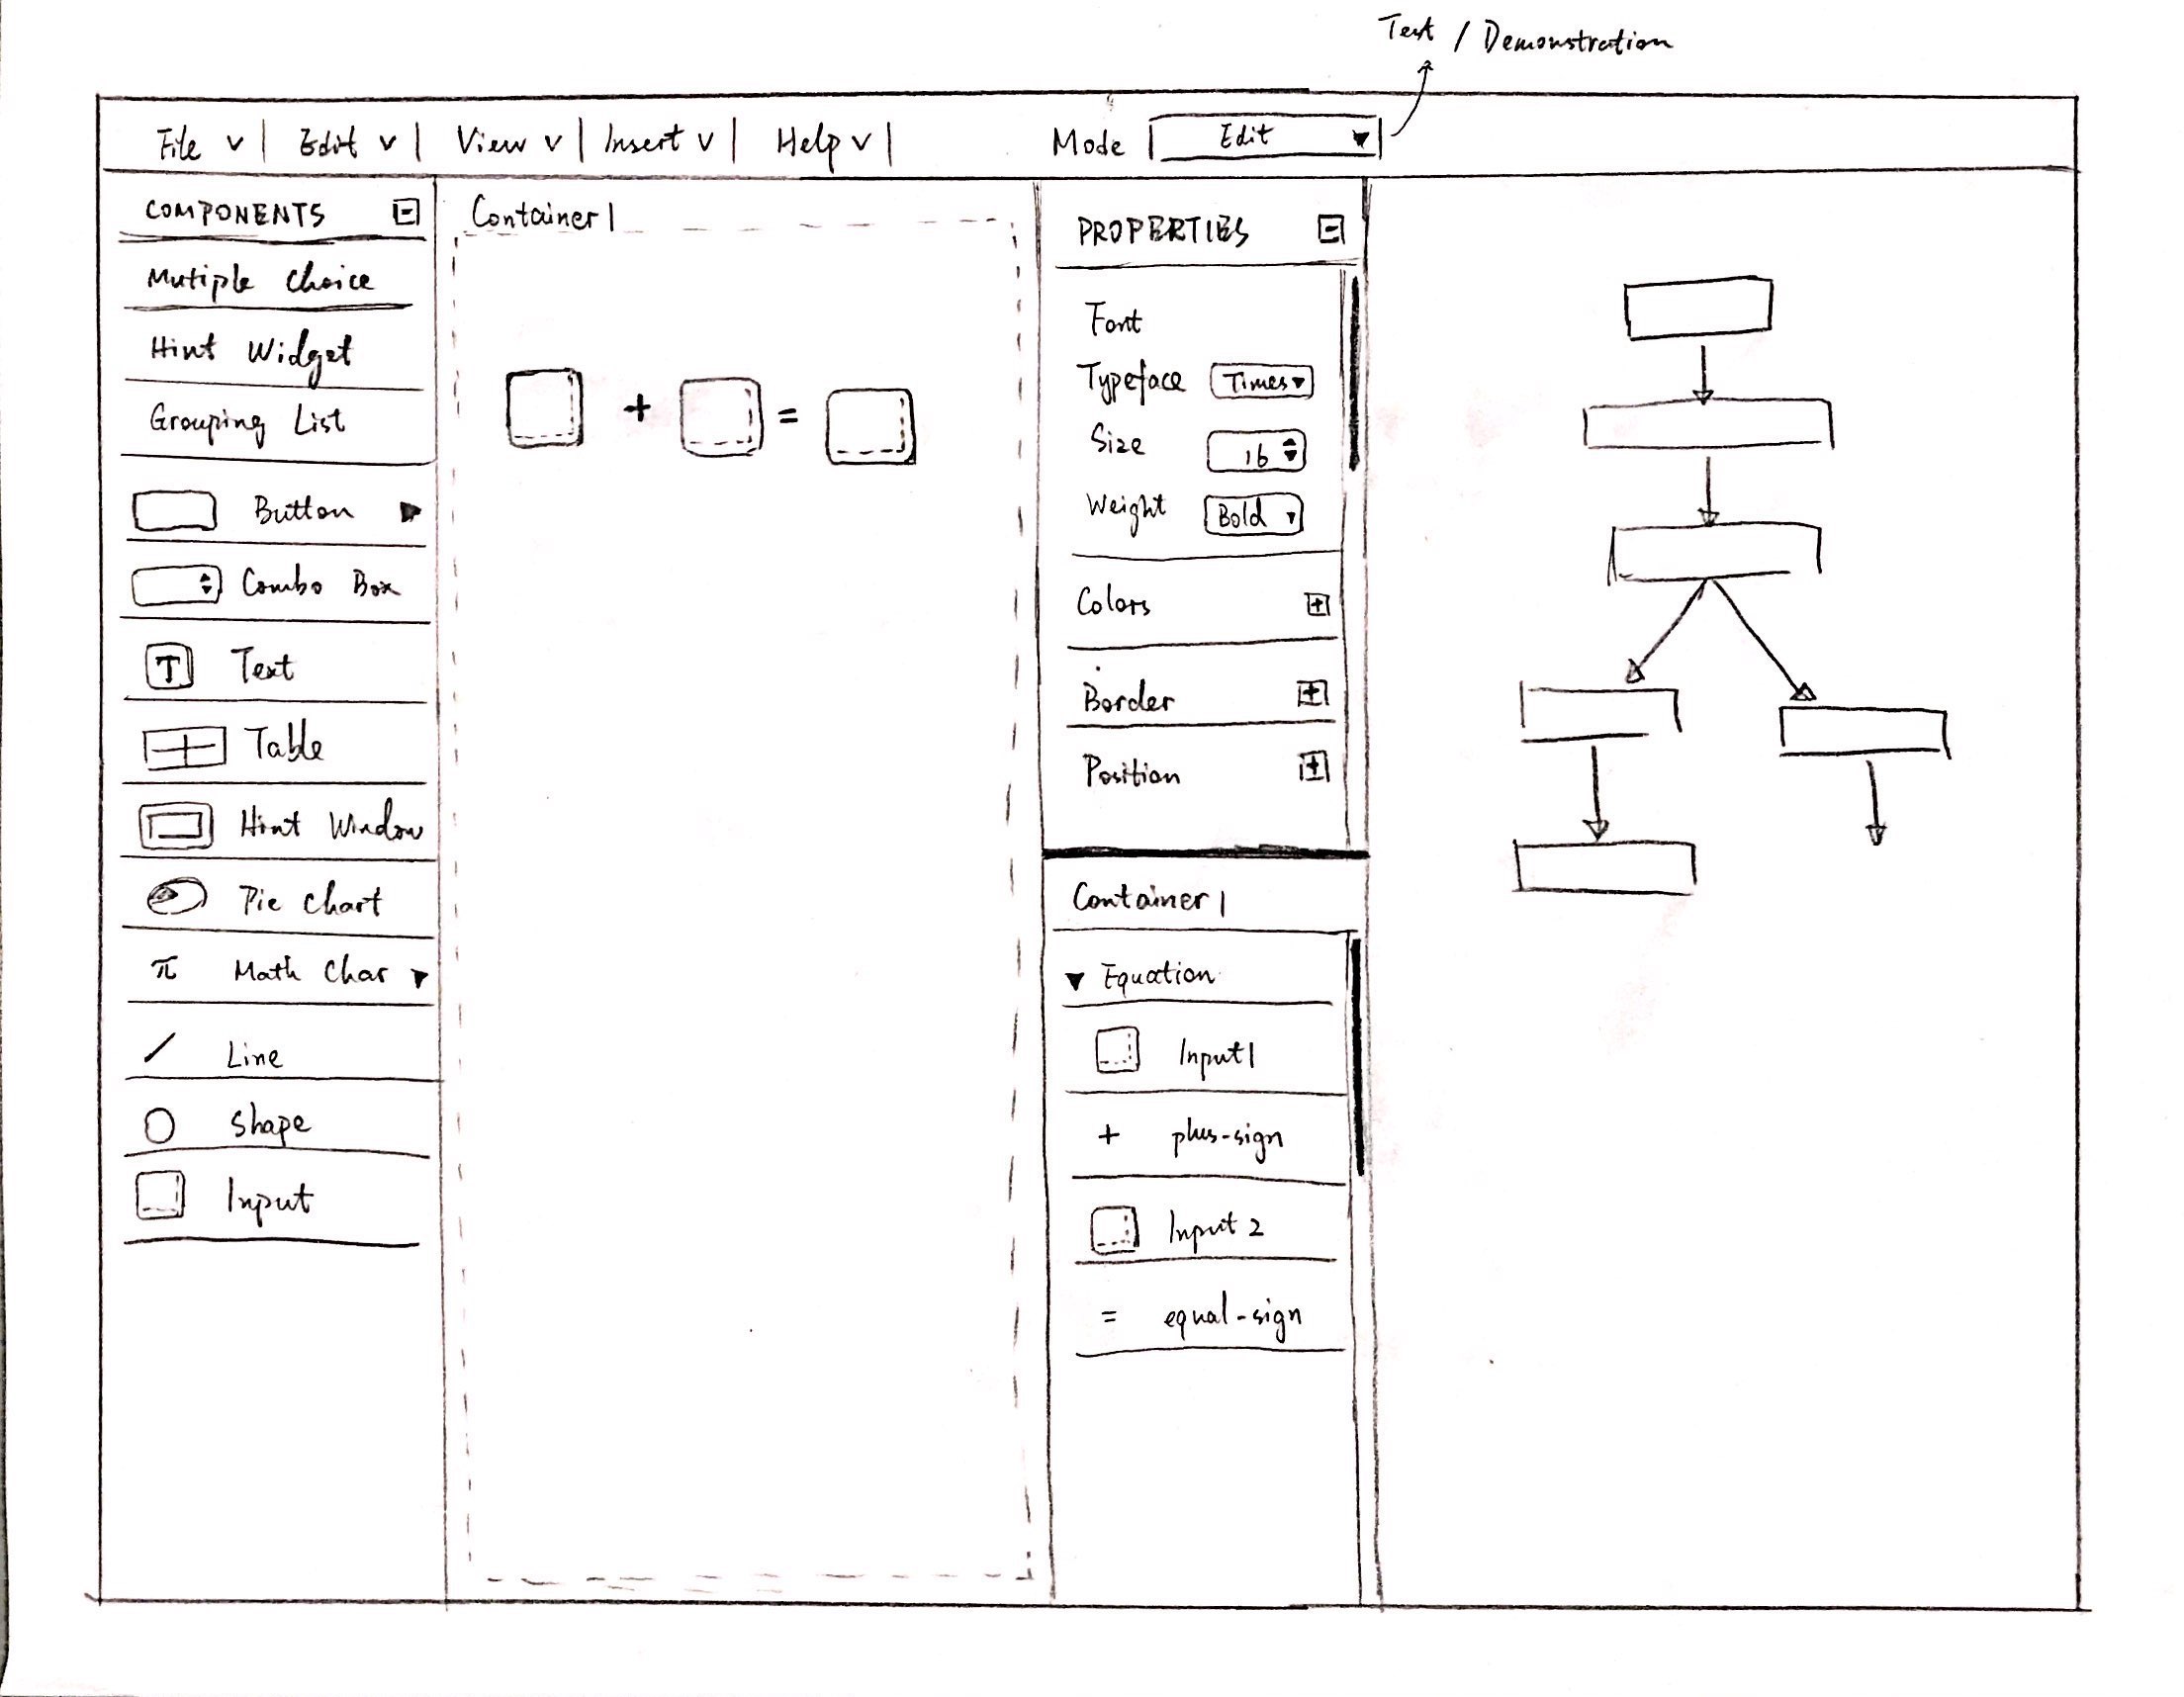 Test / Demonstration
File v | Edit v | View v | Insert v | Help v |
Mode Edit ▼
COMPONENTS
Mutiple Choice
Hint Widget
Grouping List
Button
Combo Box
T Text
Table
Hint Window
Pie Chart
π Math Char
Line
Shape
Input
Container 1
+ =
PROPERTIES
Font
Typeface Times
Size 16
Weight Bold
Colors +
Border +
Position +
Container 1
Equation
Input 1
+ plus-sign
Input 2
= equal-sign